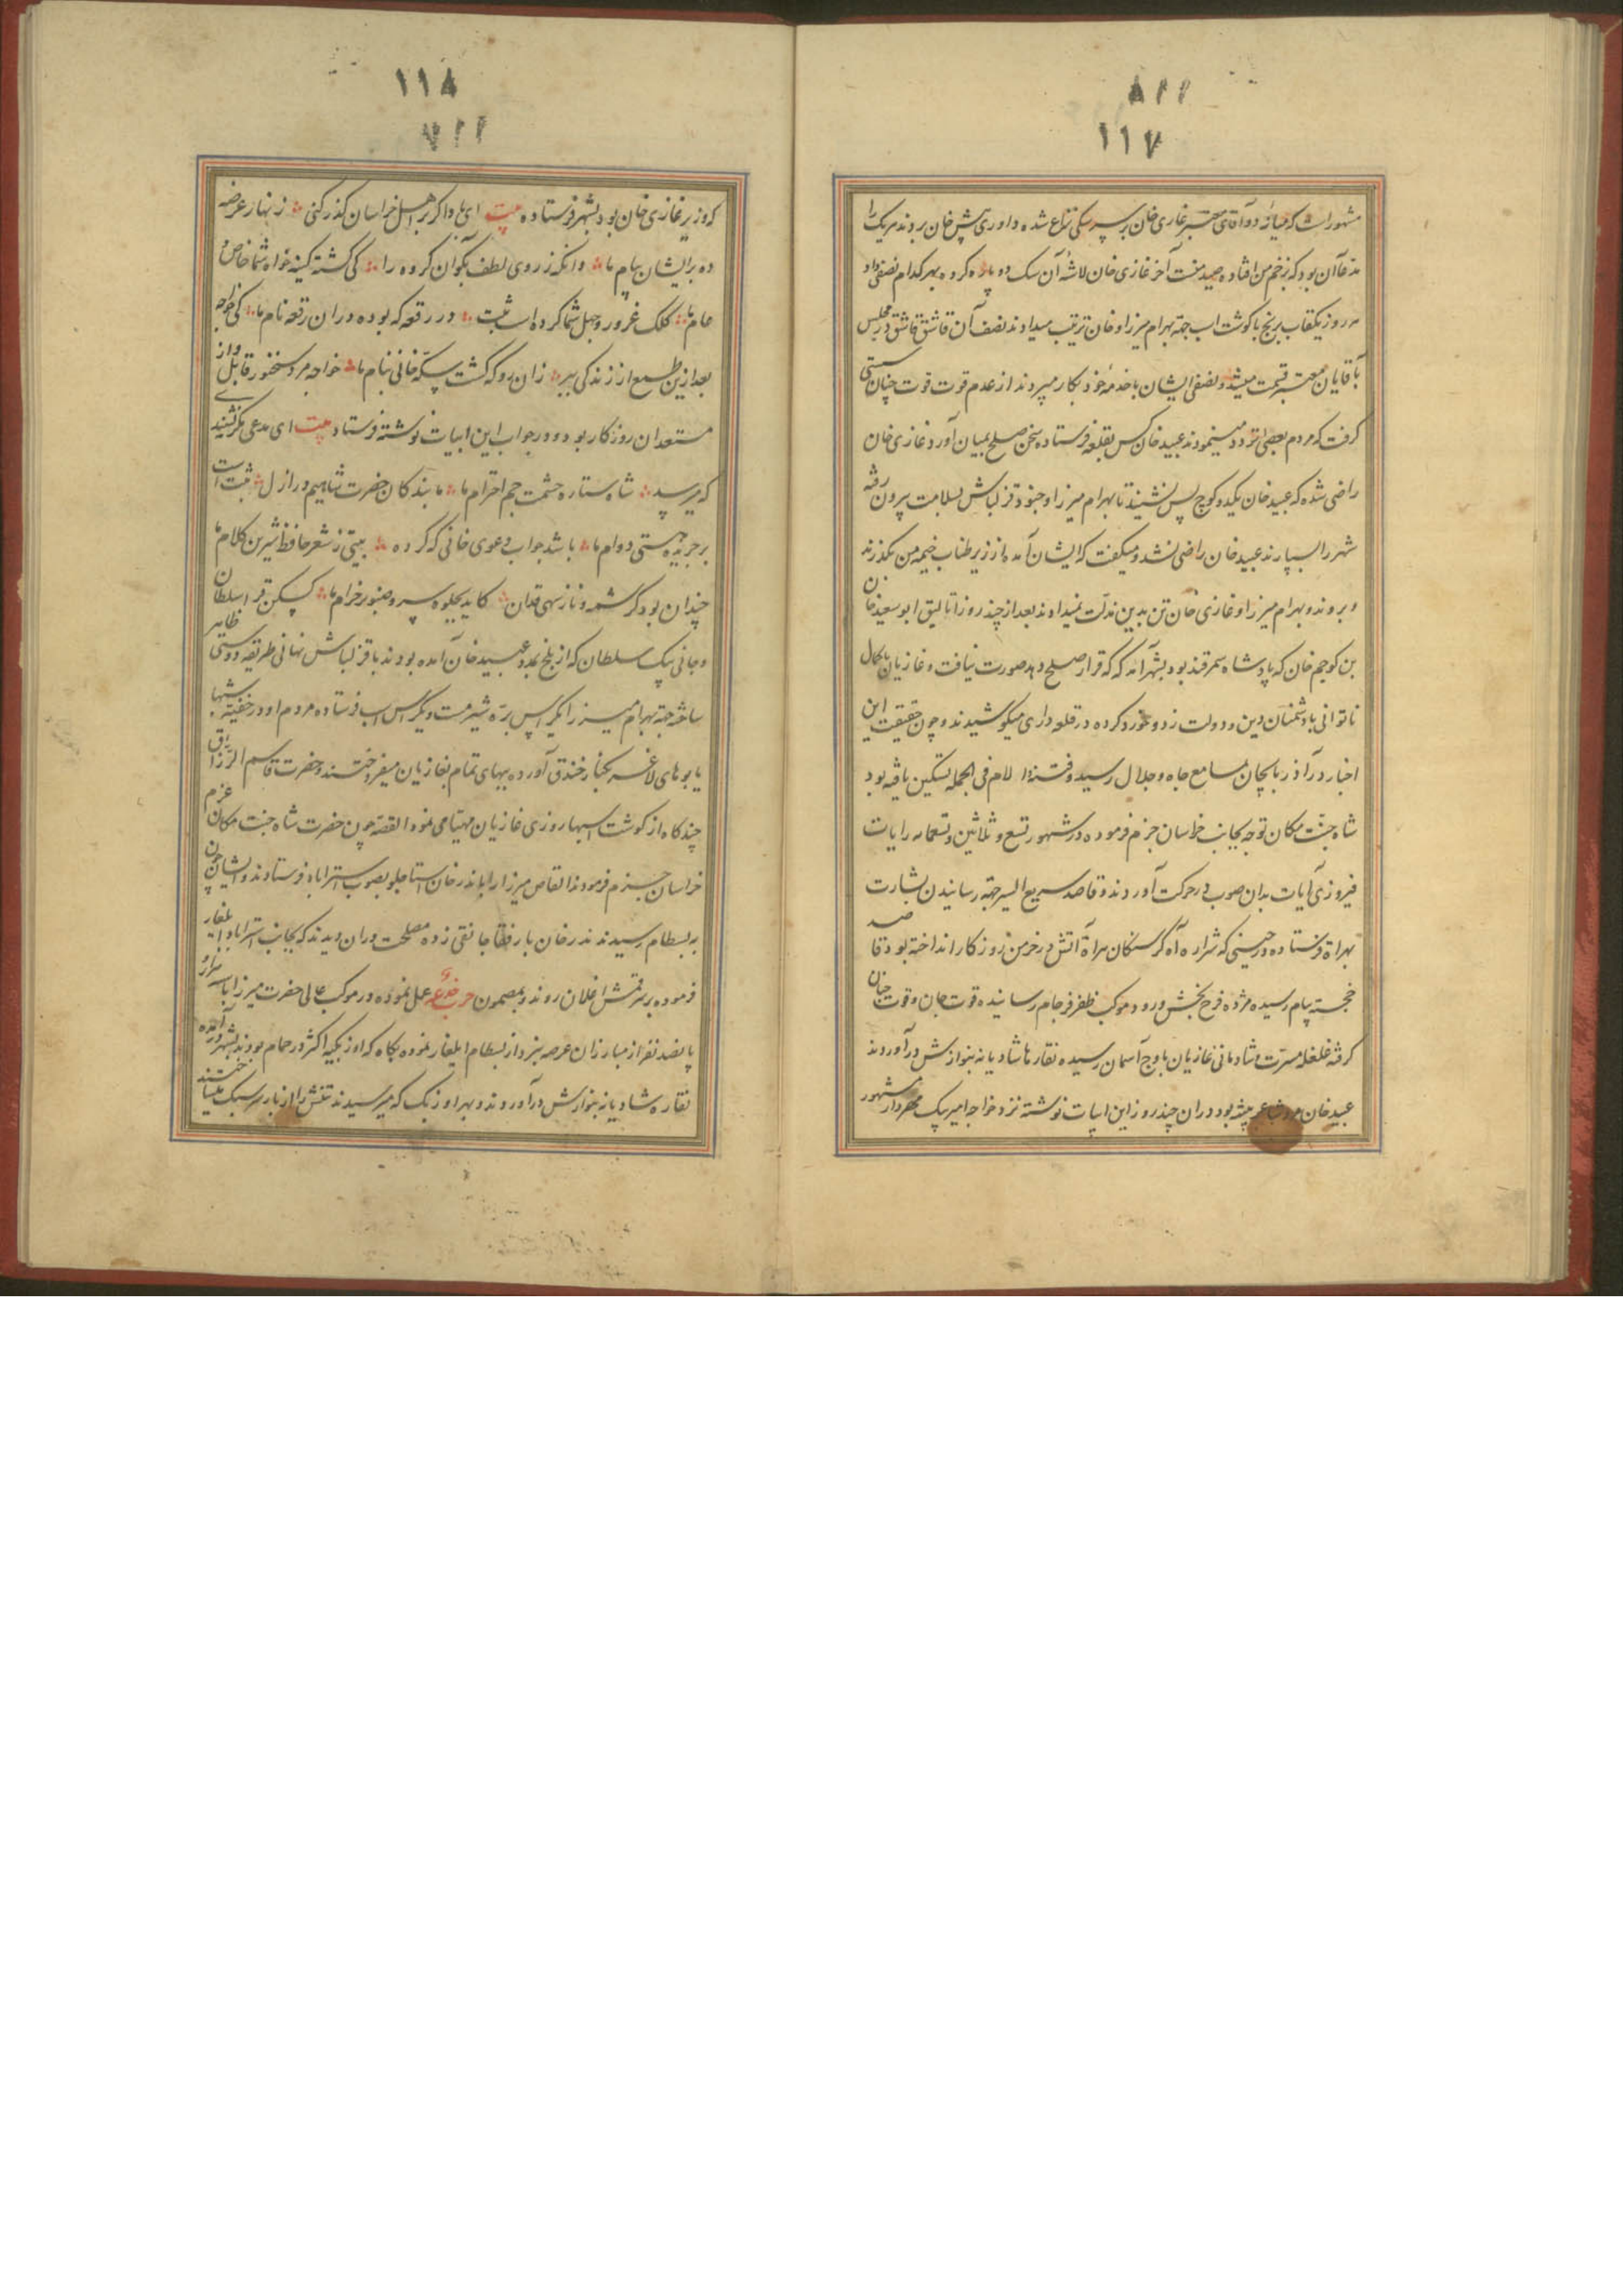 ١١٧
مشهور است که میانه دو آقای معتبر غازی خان بر سر سکی نزاع شده داوری پیش خان بردند هر یک را
مدعا آن بود که بزخم من افتاده صید منست آخر غازی خان لاشه آن سک دو پاره کرده بهر کدام نصفی داد
روز یکقاب برنج با کوشت اسب جهة بهرام میرزا و خان ترتیب میدادند نصف آن قاشق قاشق در مجلس
با قایان معتبر قسمت میشد و نصفی ایشان با خدمه خود بکار میبردند از عدم قوت قوت چنان سستی
کرفت که مردم بعضی تردد مینمودند عبید خان کس بقلعه فرستاده سخن صلح بمیان آورد غازی خان
راضی شده که عبید خان یکدو کوچ پس نشیند تا بهرام میرزا و جنود قزلباش بسلامت بیرون رفته
شهر را بسپارند عبید خان راضی نشد و میکفت که ایشان آمده از زیر طناب خیمه من بکذرند
و بروند و بهرام میرزا و غازی خان تن بدین مذلت نمیدادند بعد از چند روز اتالیق ابو سعید خان
بن کوجم خان که پادشاه سمرقند بود بشهر آمد که قرار صلح دهد صورت نیافت و غازیان بکمال
ناتوانی با دشمنان دین و دولت زد و خورد کرده در قلعه داری میکوشیدند و چون حقیقت این
اخبار در آذربایجان بمسامع جاه و جلال رسید و فتنه الامه فی الجمله تسکین یافته بود
شاه جنت مکان توجه بجانب خراسان جزم فرموده در شهور تسع و ثلاثین و تسعمایه رایات
فیروزی آیات بدان صوب در حرکت آوردند و قاصد سریع السیر جهة رسانیدن بشارت
بهراة فرستاده در حینی که شراره آه کرسنکان هراة آتش در خرمن روزکار انداخته بود قاصد
خجسته پیام رسیده مژده فرح بخش ورود موکب ظفر فرجام رسانیده قوت جان و قوت جنان
کرفته غلغله مسرت و شادمانی غازیان باوج آسمان رسیده نقارها شادیانه بنوازش درآوردند
عبید خان مرد شاعر پیشه بود در آن چند روز این ابیات نوشته نزد خواجه امیر بیک مهردار مشهور
١١٨
که وزیر غازی خان بود بشهر فرستاده بیت ای باد اکر بر اهل خراسان کذر کنی زنهار عرضه
ده بر ایشان پیام ما وانکه ز روی لطف بکو آن کروه را کی کشته کینه خواه شما خاص و
عام ما کلک غرور و جهل شما کرده است ثبت در رقعه که بوده در آن رقعه نام ما کی خواجه
بعد ازین طمع از زندکی ببر زان رو که کشت سکه خانی بنام ما خواجه مرد سخنور قابل و از
مستعدان روزکار بود و در جواب این ابیات نوشته فرستاد بیت ای مدعی مکر نشنیدی
که میرسد شاه ستاره حشمت جم احترام ما ما بندکان حضرت شاهیم در ازل ثبت است
بر جریده هستی دوام ما باشد جواب دعوی خانی که کرده بیتی ز شعر حافظ شیرین کلام ما
چندان بود کرشمه و ناز سهی قدان کاید بجلوه سرو صنوبر خرام ما کسکن قرا سلطان
و جانی بیک سلطان که از بلخ بمدد عبید خان آمده بودند با قزلباش نهانی طریقه دوستی ظاهر
ساخته جهة بهرام میرزا یکراس بره شیر مست و یکراس اسب فرستاده مردم او در خفیه شبها
یابوهای لاغر بکنار خندق آورده ببهای تمام بغازیان میفروختند و حضرت قاسم الرزاق
چند کاه از کوشت اسبها روزی غازیان مهیا می نمود القصه چون حضرت شاه جنت مکان عزم
خراسان جزم فرمودند القاص میرزا را با بدر خان استاجلو بصوب استراباد فرستادند و ایشان چون
به بسطام رسیدند بدر خان با رفقا جانقی زده مصلحت در آن دیدند که بجانب استراباد ایلغار
فرموده بر سر قمش اغلان روند و بمضمون حرب خدعه عمل نموده در موکب عالی حضرت میرزا با سه هزار
پانصد نفر از مبارزان عرصه نبرد از بسطام ایلغار نموده پکاه که اوزبکیه اکثر در حمام بودند بشهر درآمده
نقاره شادیانه بنوازش درآوردند و بهر اوزبک که میرسیدند تنش را از بار سر سبک میساختند